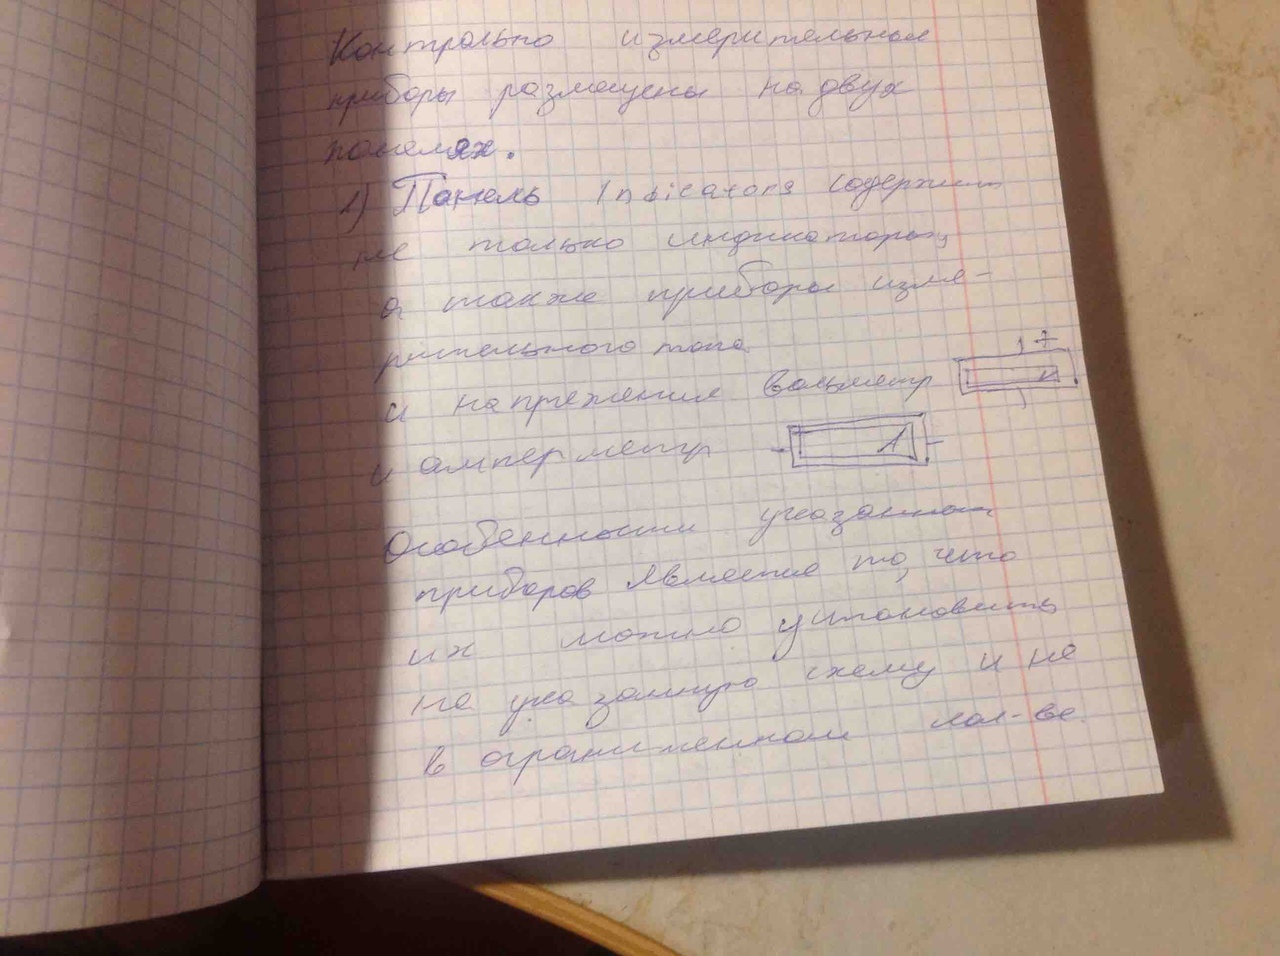 Контрольно измерительные
приборы размещены на двух
панелях.
1) Панель Indicators содержит
не только индикаторы,
а также приборы изме-
рительного типа
и напряжения вольметр
и амперметр
A
Особенностью указанных
приборов является то, что
их можно установить
на указанную схему и не
в ограниченном кол-ве.